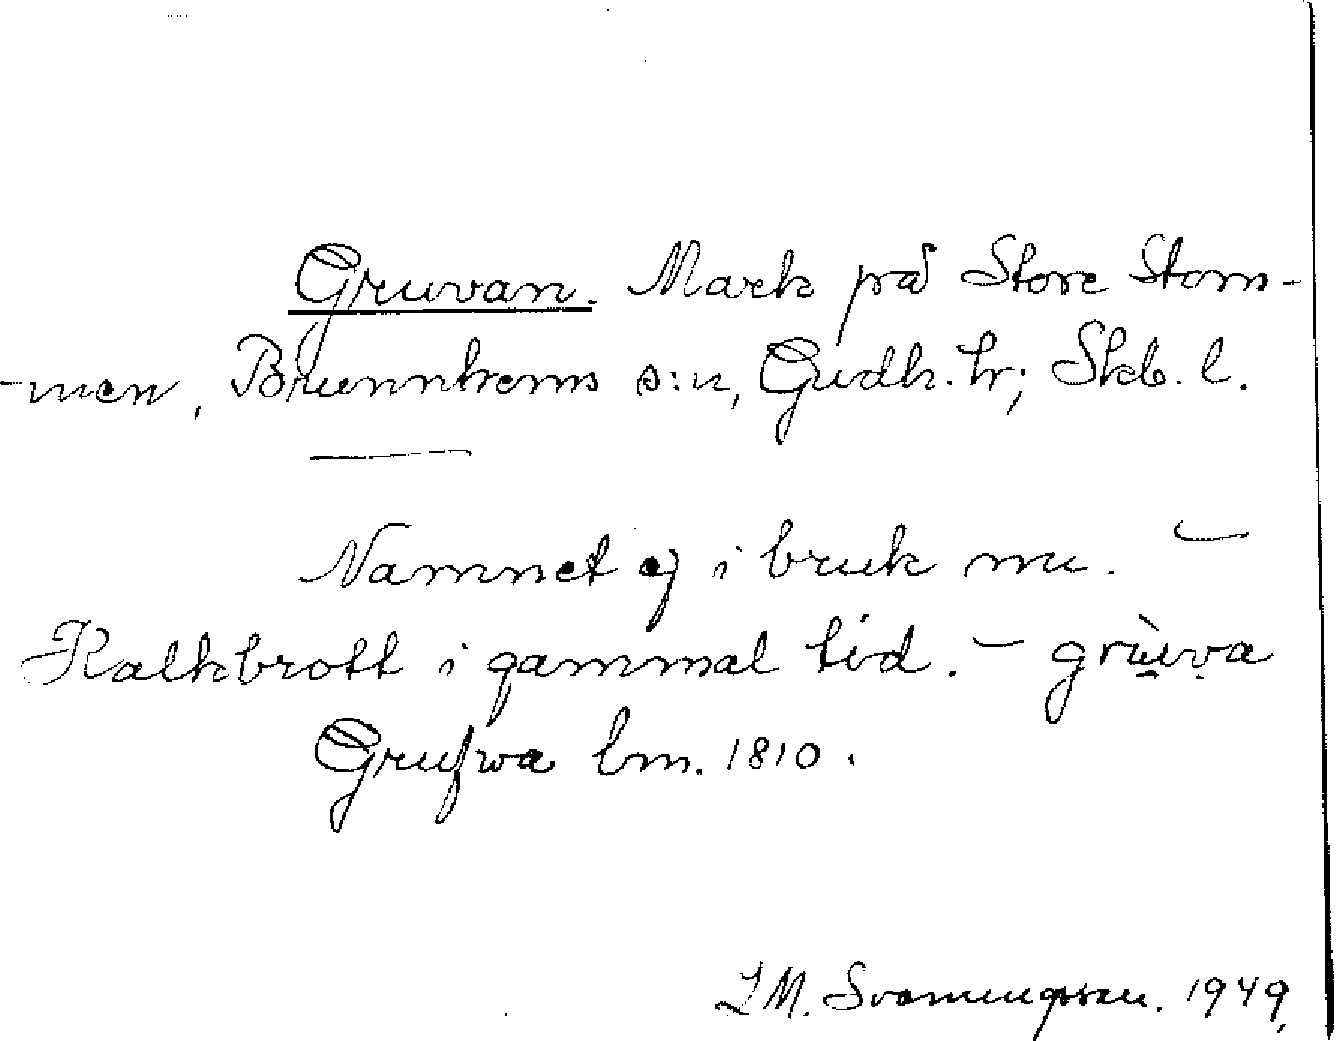 Gruvan. Mark på Store Stom-
-men, Brunnhems s:n, Gudh. hr; Skb. l.
Namnet ej i bruk nu. —
Kalkbrott i gammal tid. — grùva
Grufwa lm. 1810.
I M. Svanungsson. 1949.